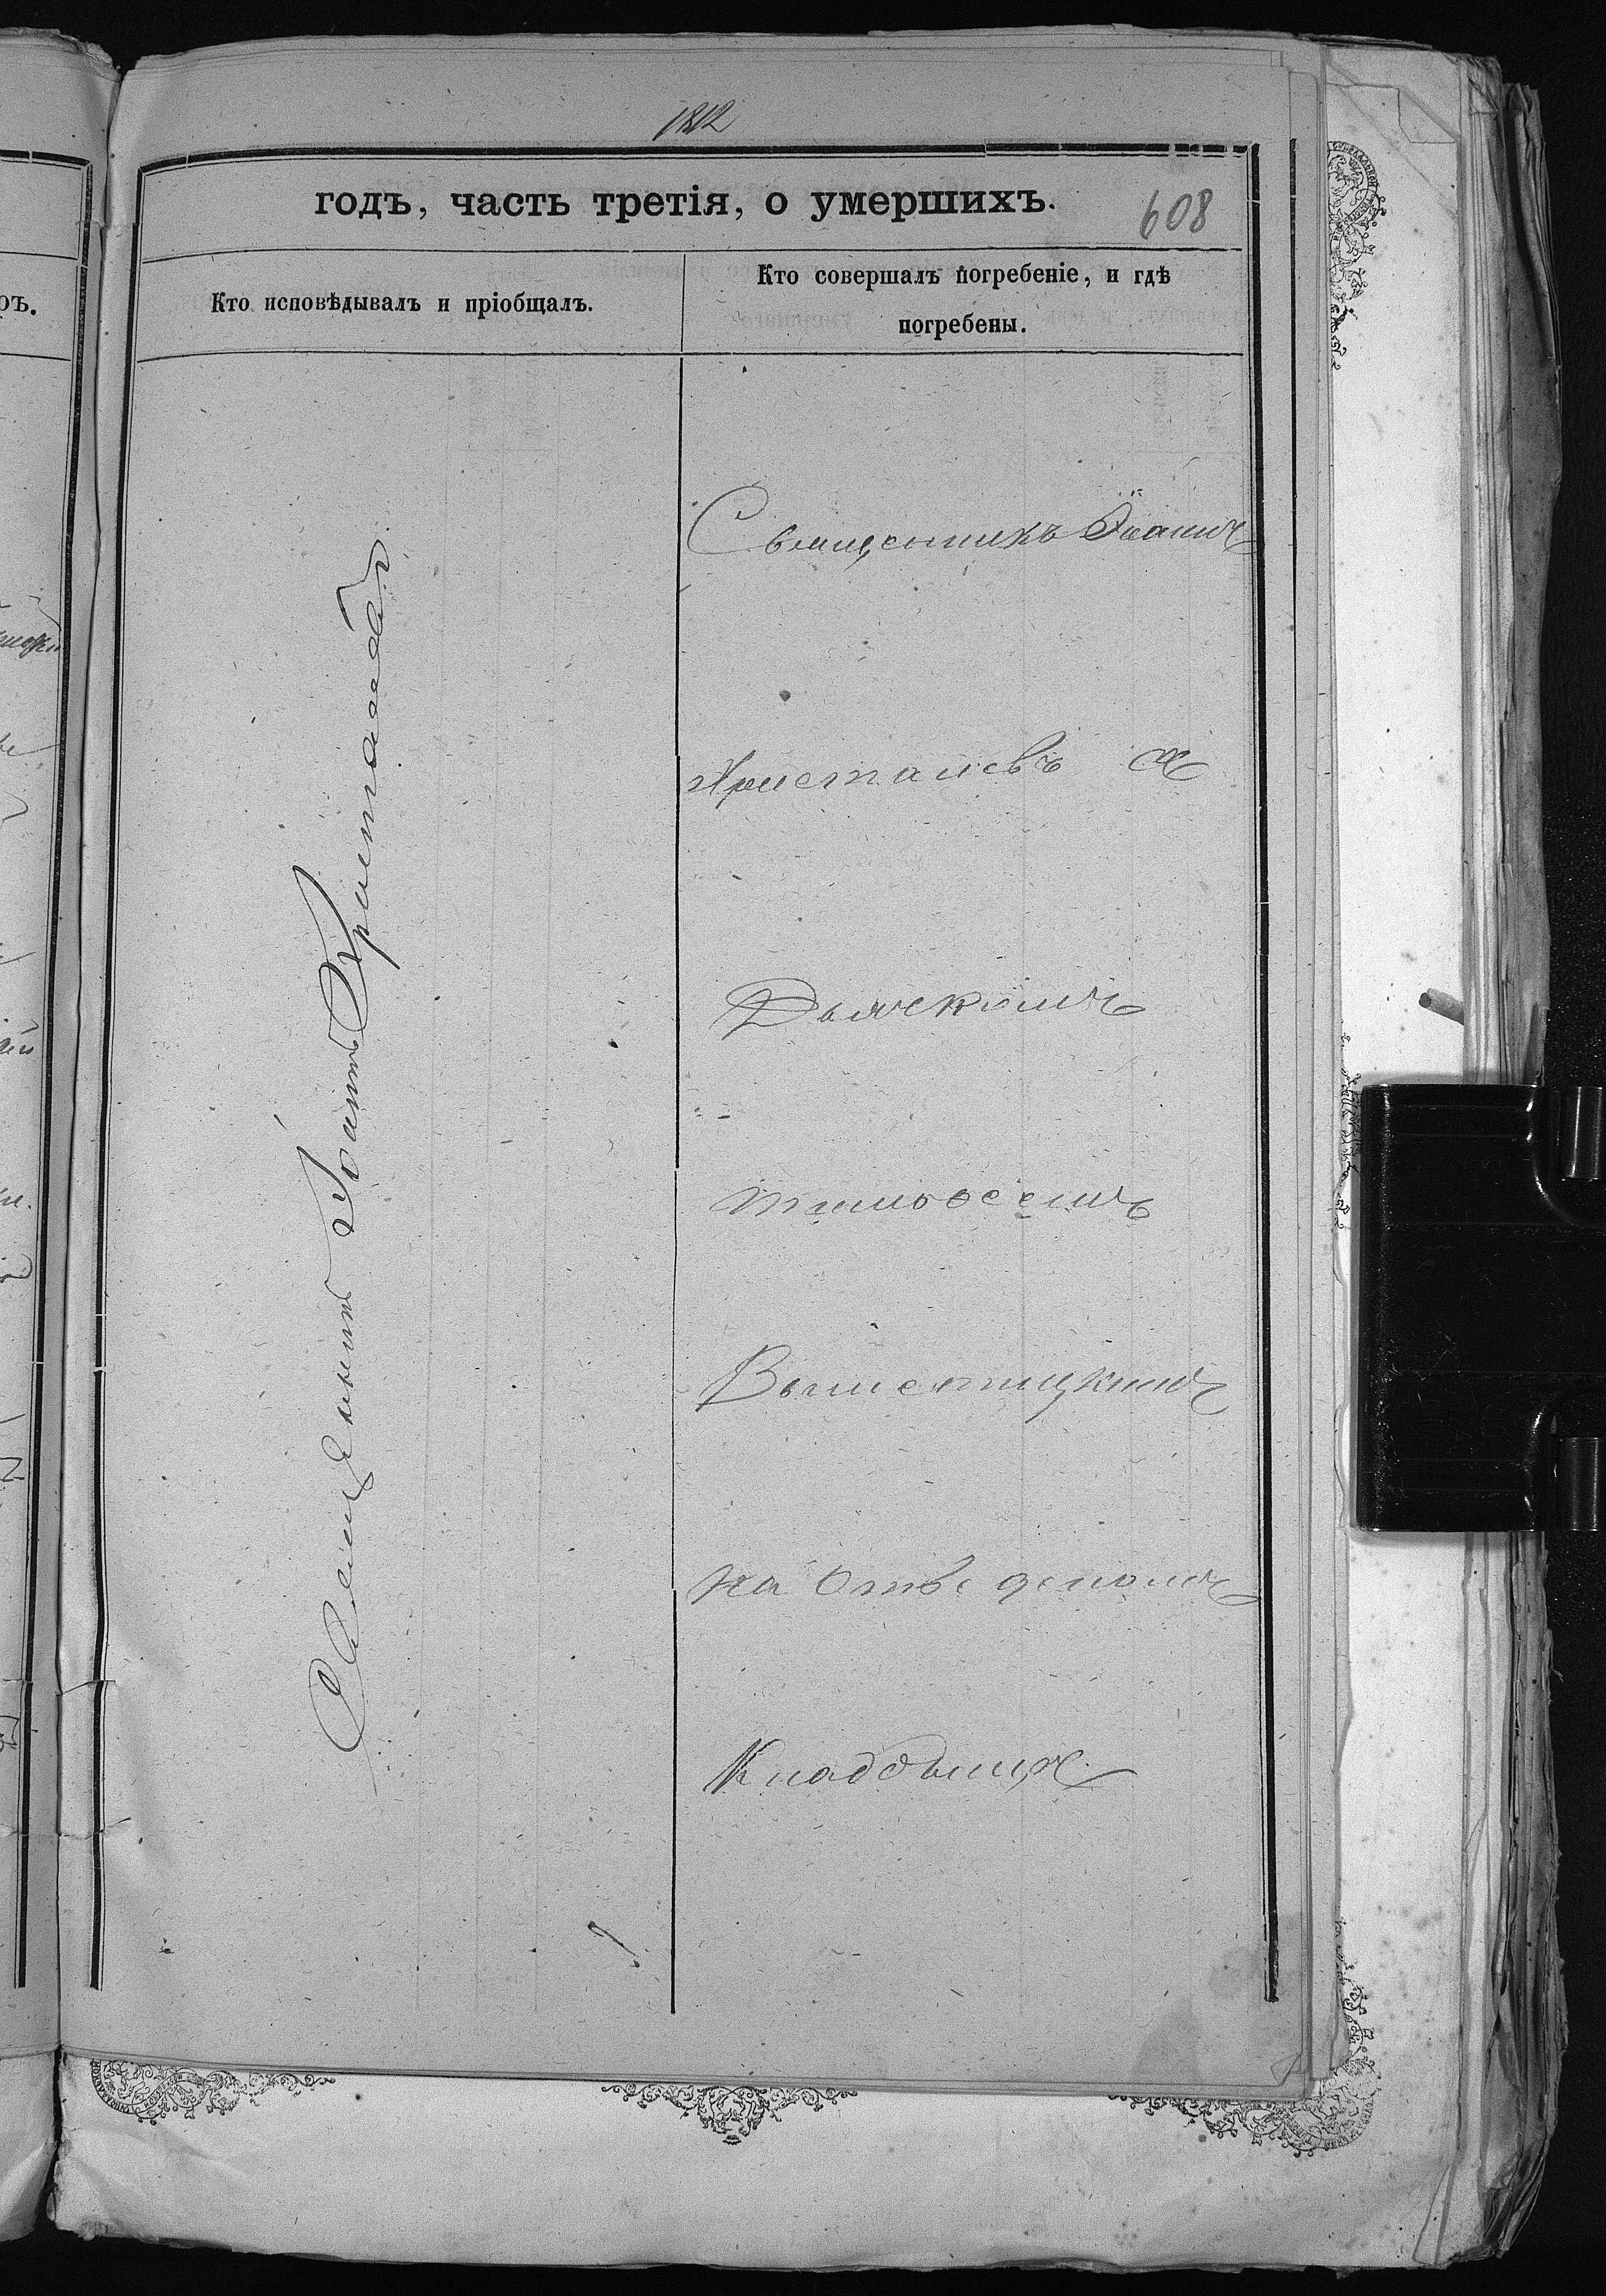 годъ, часть третія, о умершихъ.
608
Кто исповѣдывалъ и пріобщалъ.
Кто совершалъ погребеніе, и гдѣ
погребены.
Священникъ Іоаннъ Кристалевъ
Священникъ Іоаннъ
Кристалевъ съ
Дьячкомъ
Тимофеемъ
на отведеномъ
Кладбищѣ